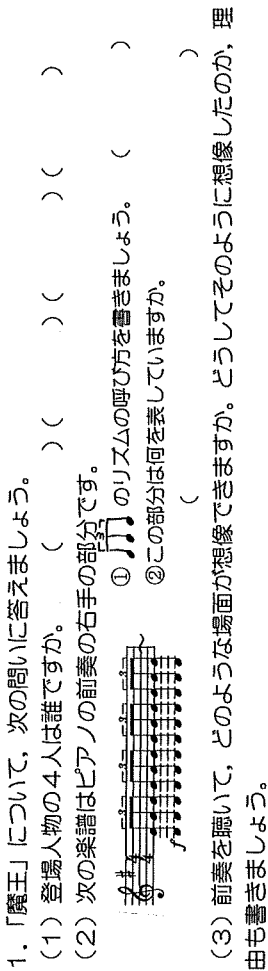 1.「魔王」について,次の問いに答えましょう。
(1)登場人物の4人は誰ですか。( )( )( )( )
(2)次の楽譜はピアノの前奏の右手の部分です。
① のリズムの呼び方を書きましょう。( )
②この部分は何を表していますか。
( )
(3)前奏を聴いて,どのような場面が想像できますか。どうしてそのように想像したのか,理
由も書きましょう。